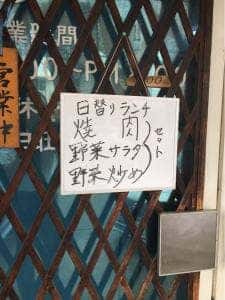 業時間
営業中
日替りランチ
焼肉
野菜サラダ
野菜炒め
セット